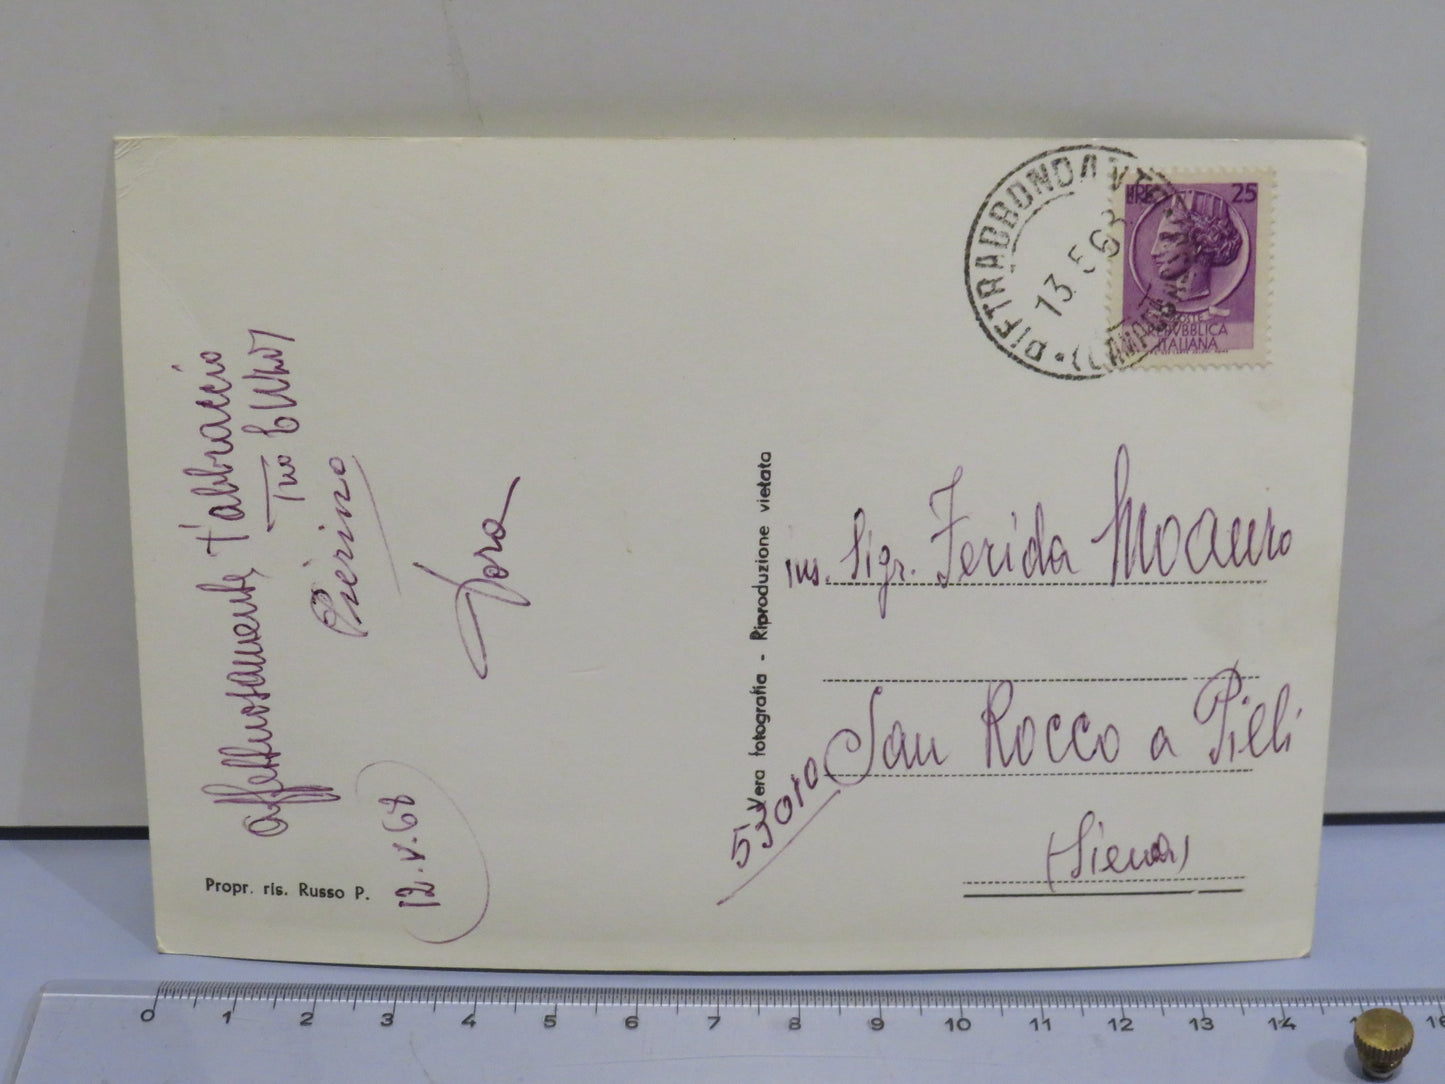 affettuosamente, t'abbraccio
Tuo
Pierino
Dora
12.V.68
Propr. ris. Russo P.
Vera fotografia - Riproduzione vietata
PIETRABBONDANTE
(CAMPOBASSO)
13.5.68
LIRE 25
POSTE
REPVBBLICA
ITALIANA
ins. Sigr. Ferida Moauro
San Rocco a Pilli
53010
(Siena)
0 1 2 3 4 5 6 7 8 9 10 11 12 13 14 15 16